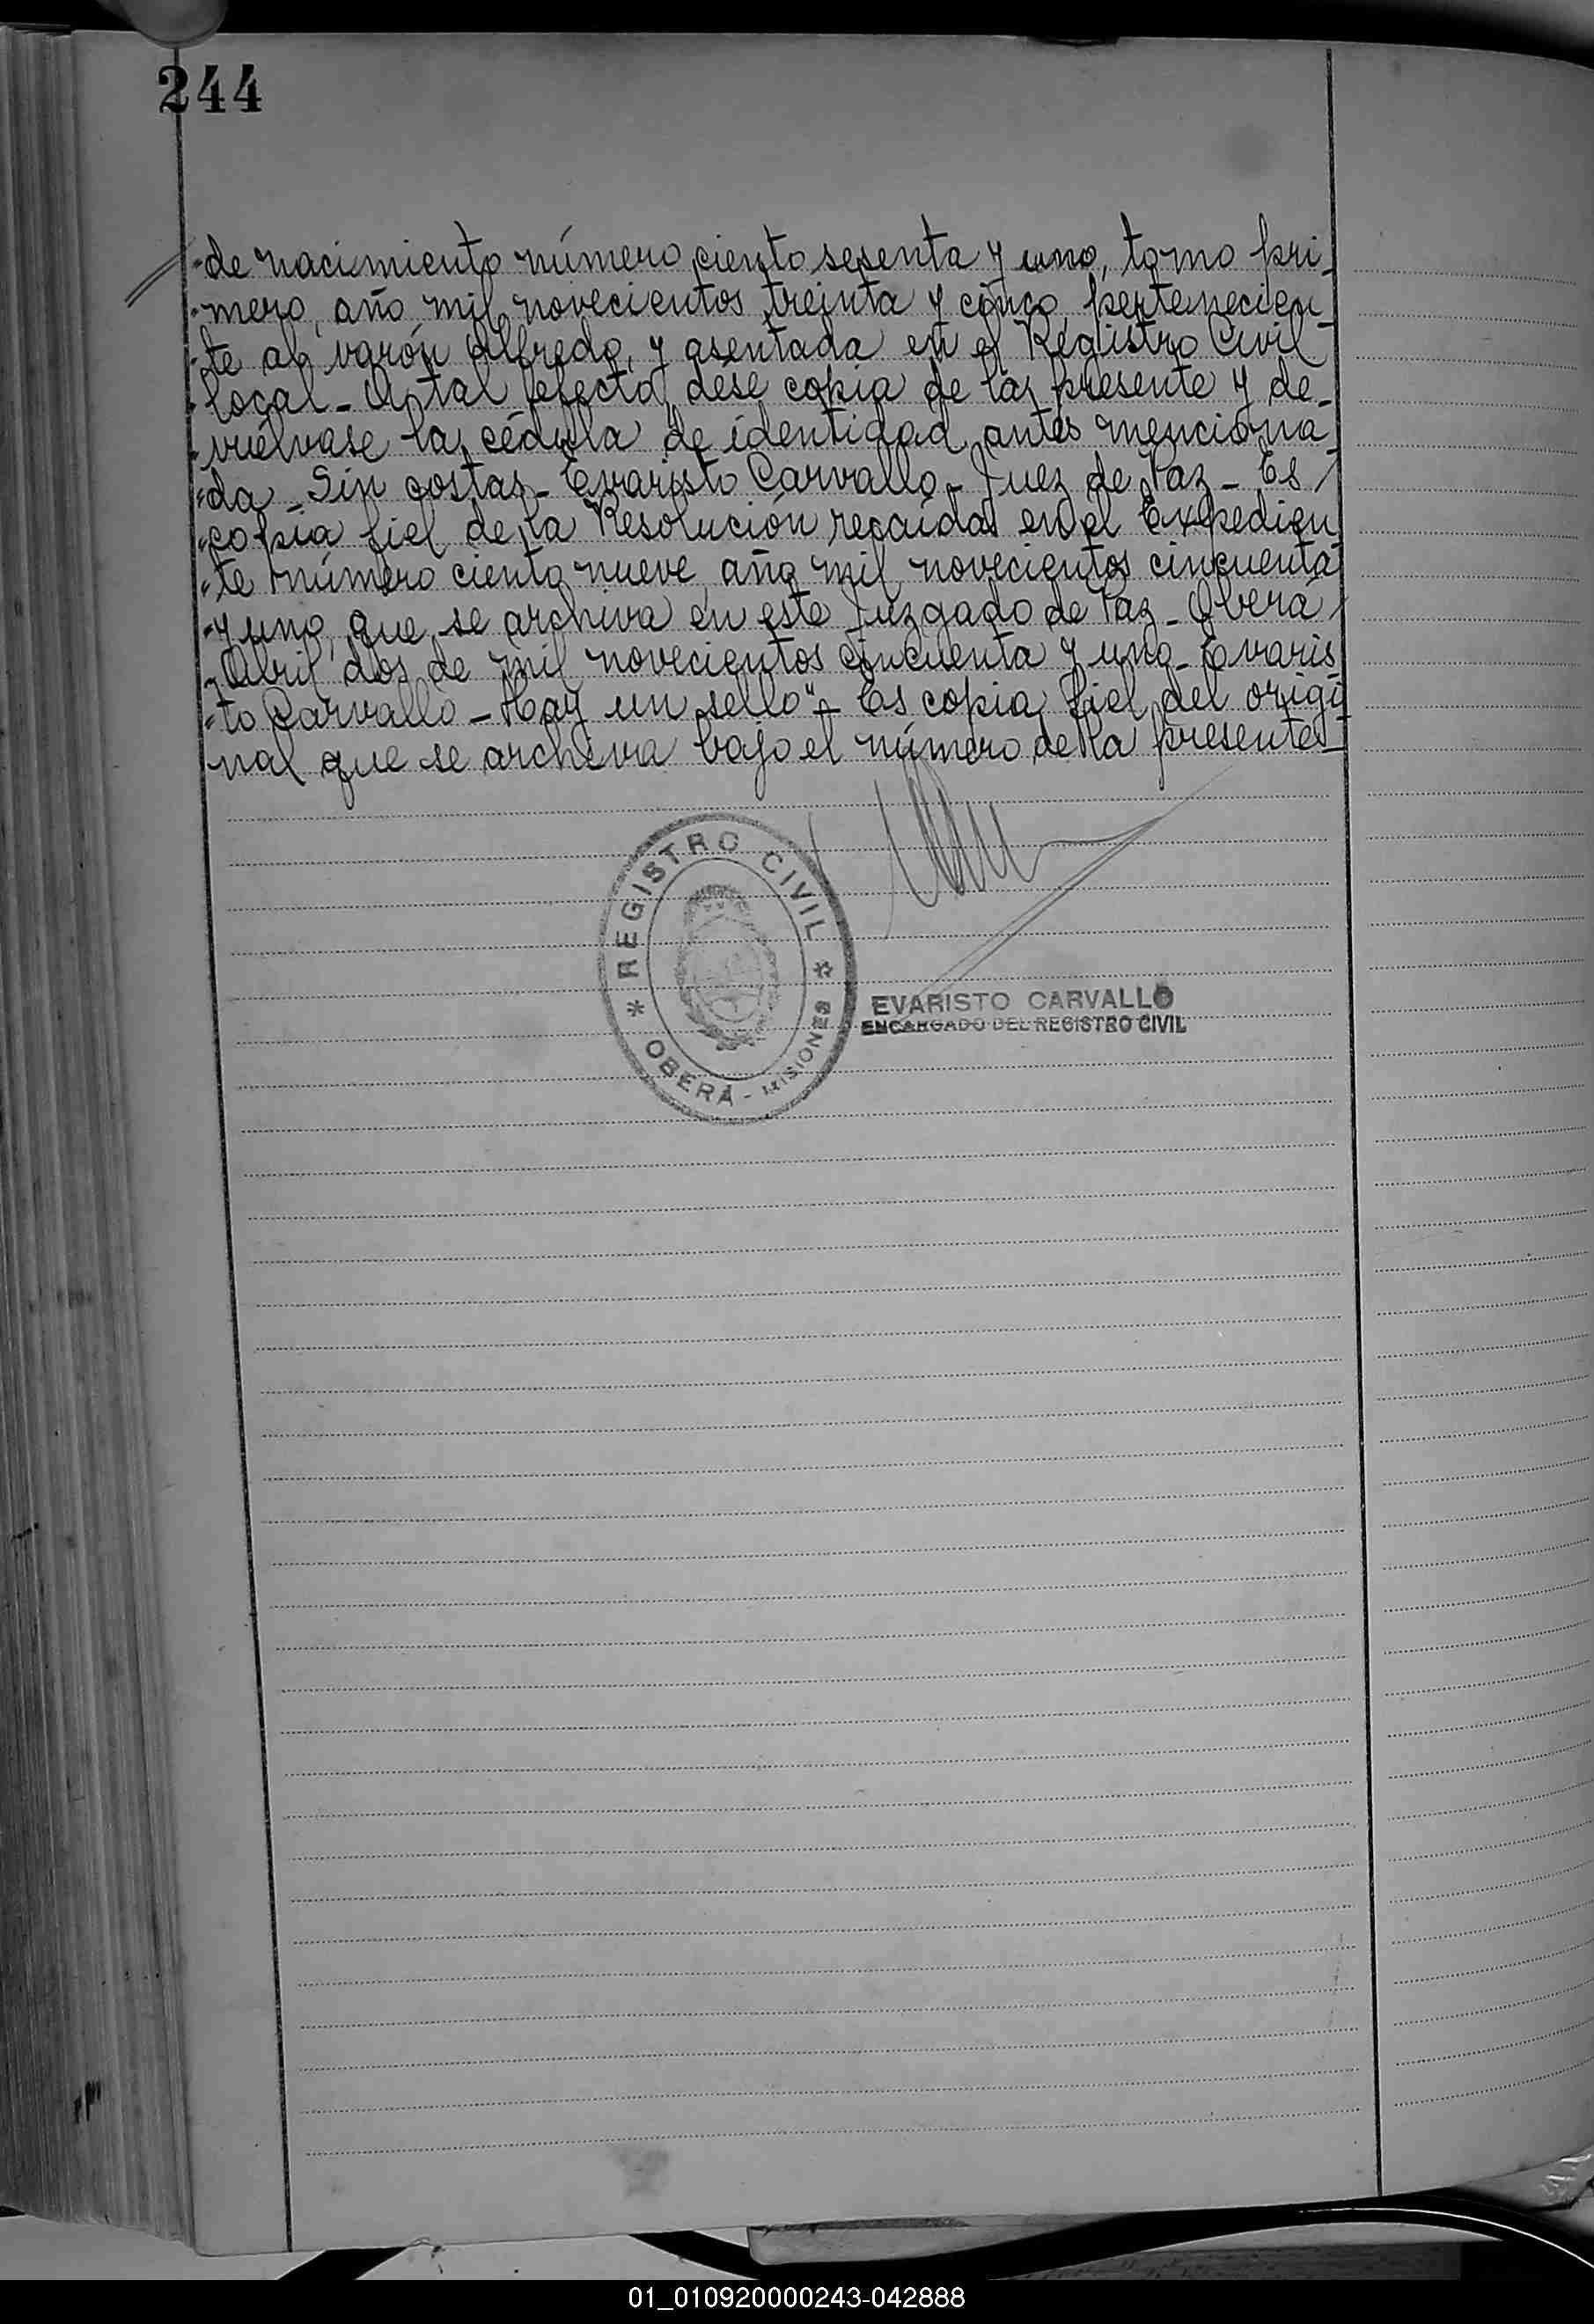 244
"de nacimiento número ciento sesenta y uno, tomo pri_
"mero, año mil novecientos treinta y cinco, pertenecien_
"te al varón Alfredo, y asentada en el Registro Civil
"local_ A tal efecto, dése copia de la presente y de_
"vuélvase la cédula de identidad antes menciona_
"da_ Sin costas_ Evaristo Carvallo_ Juez de Paz_ Es/
"copia fiel de la Resolución recaída en el Expedien_
"te número ciento nueve, año mil novecientos cincuenta
"y uno, que se archiva en este Juzgado de Paz_ Oberá/
"Abril dos de mil novecientos cincuenta y uno_ Evaris_
"to Carvallo_ Hay un sello"_ Es copia fiel del origi_
nal que se archiva bajo el número de la presente_
REGISTRO CIVIL
* OBERÁ - MISIONES *
EVARISTO CARVALLO
ENCARGADO DEL REGISTRO CIVIL
01_010920000243-042888